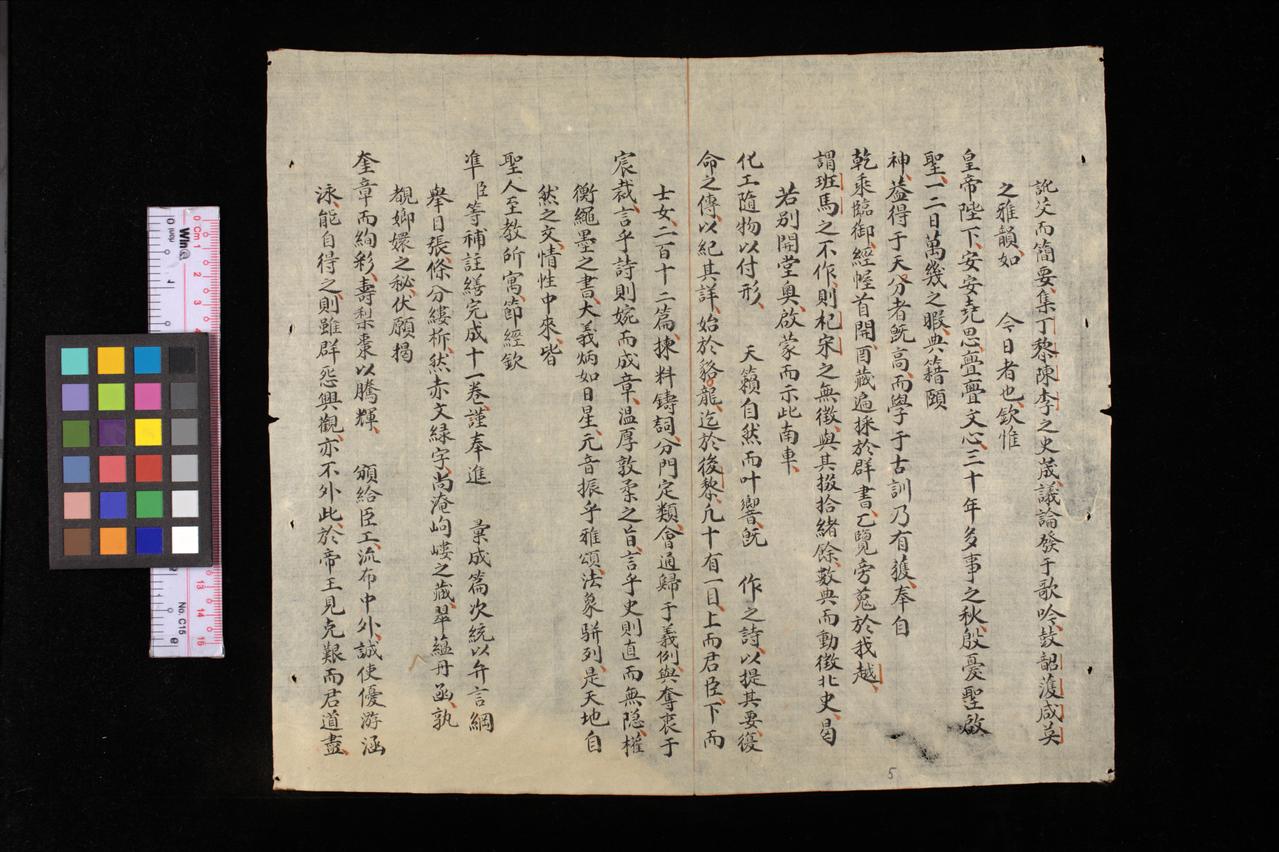 訛父而簡要集丁黎陳李之史葴議論發于歌吟鼓韶濩咸英
之雅韻如 今日者也欽惟
皇帝陛下安安堯思亹亹文心三十年多事之秋殷憂聖啟
聖一二日萬幾之暇典籍頤
神葢得于天分者既高而學于古訓乃有獲奉自
乾乘臨御經幄首開酉葴遍採於群書乙覽旁蒐於我越
謂班馬之不作則杞宋之無徵與其掇拾緒餘數典而動徵北史曷
若別開堂奧啟蒙而示此南車
化工隨物以付形 天籟自然而叶響既 作之詩以提其要復
命之傳以紀其詳始於貉龍迄於後黎凡十有一目上而君臣下而
士女二百十二篇揀料鑄詞分門定類會通歸于義例與奪衷于
宸裁言乎詩則婉而成章溫厚敦柔之旨言乎史則直而無隱權
衡繩墨之書大義炳如日星元音振乎雅頌法象駢列是天地自
然之文情性中來皆
聖人至教所寓節經欽
準臣等補註繕完成十一卷謹奉進 彙成篇次統以弁言綱
舉目張條分縷析然赤文綠字尚淹岣嶁之葴翠蘊丹函孰
覩嫏嬛之秘伏願揭
奎章而絢彩壽梨棗以騰輝 頒給臣工流布中外誠使優游涵
泳能自得之則雖群怨興觀亦不外此於帝王見克艱而君道盡
5
Cm 1 2 3 4 13 14 15
No. C15